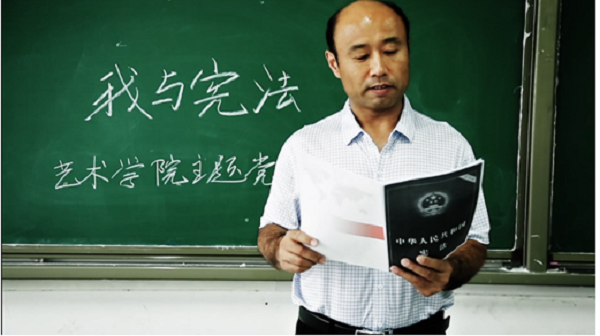 我与宪法
艺术学院主题党
中华人民共和国
宪法